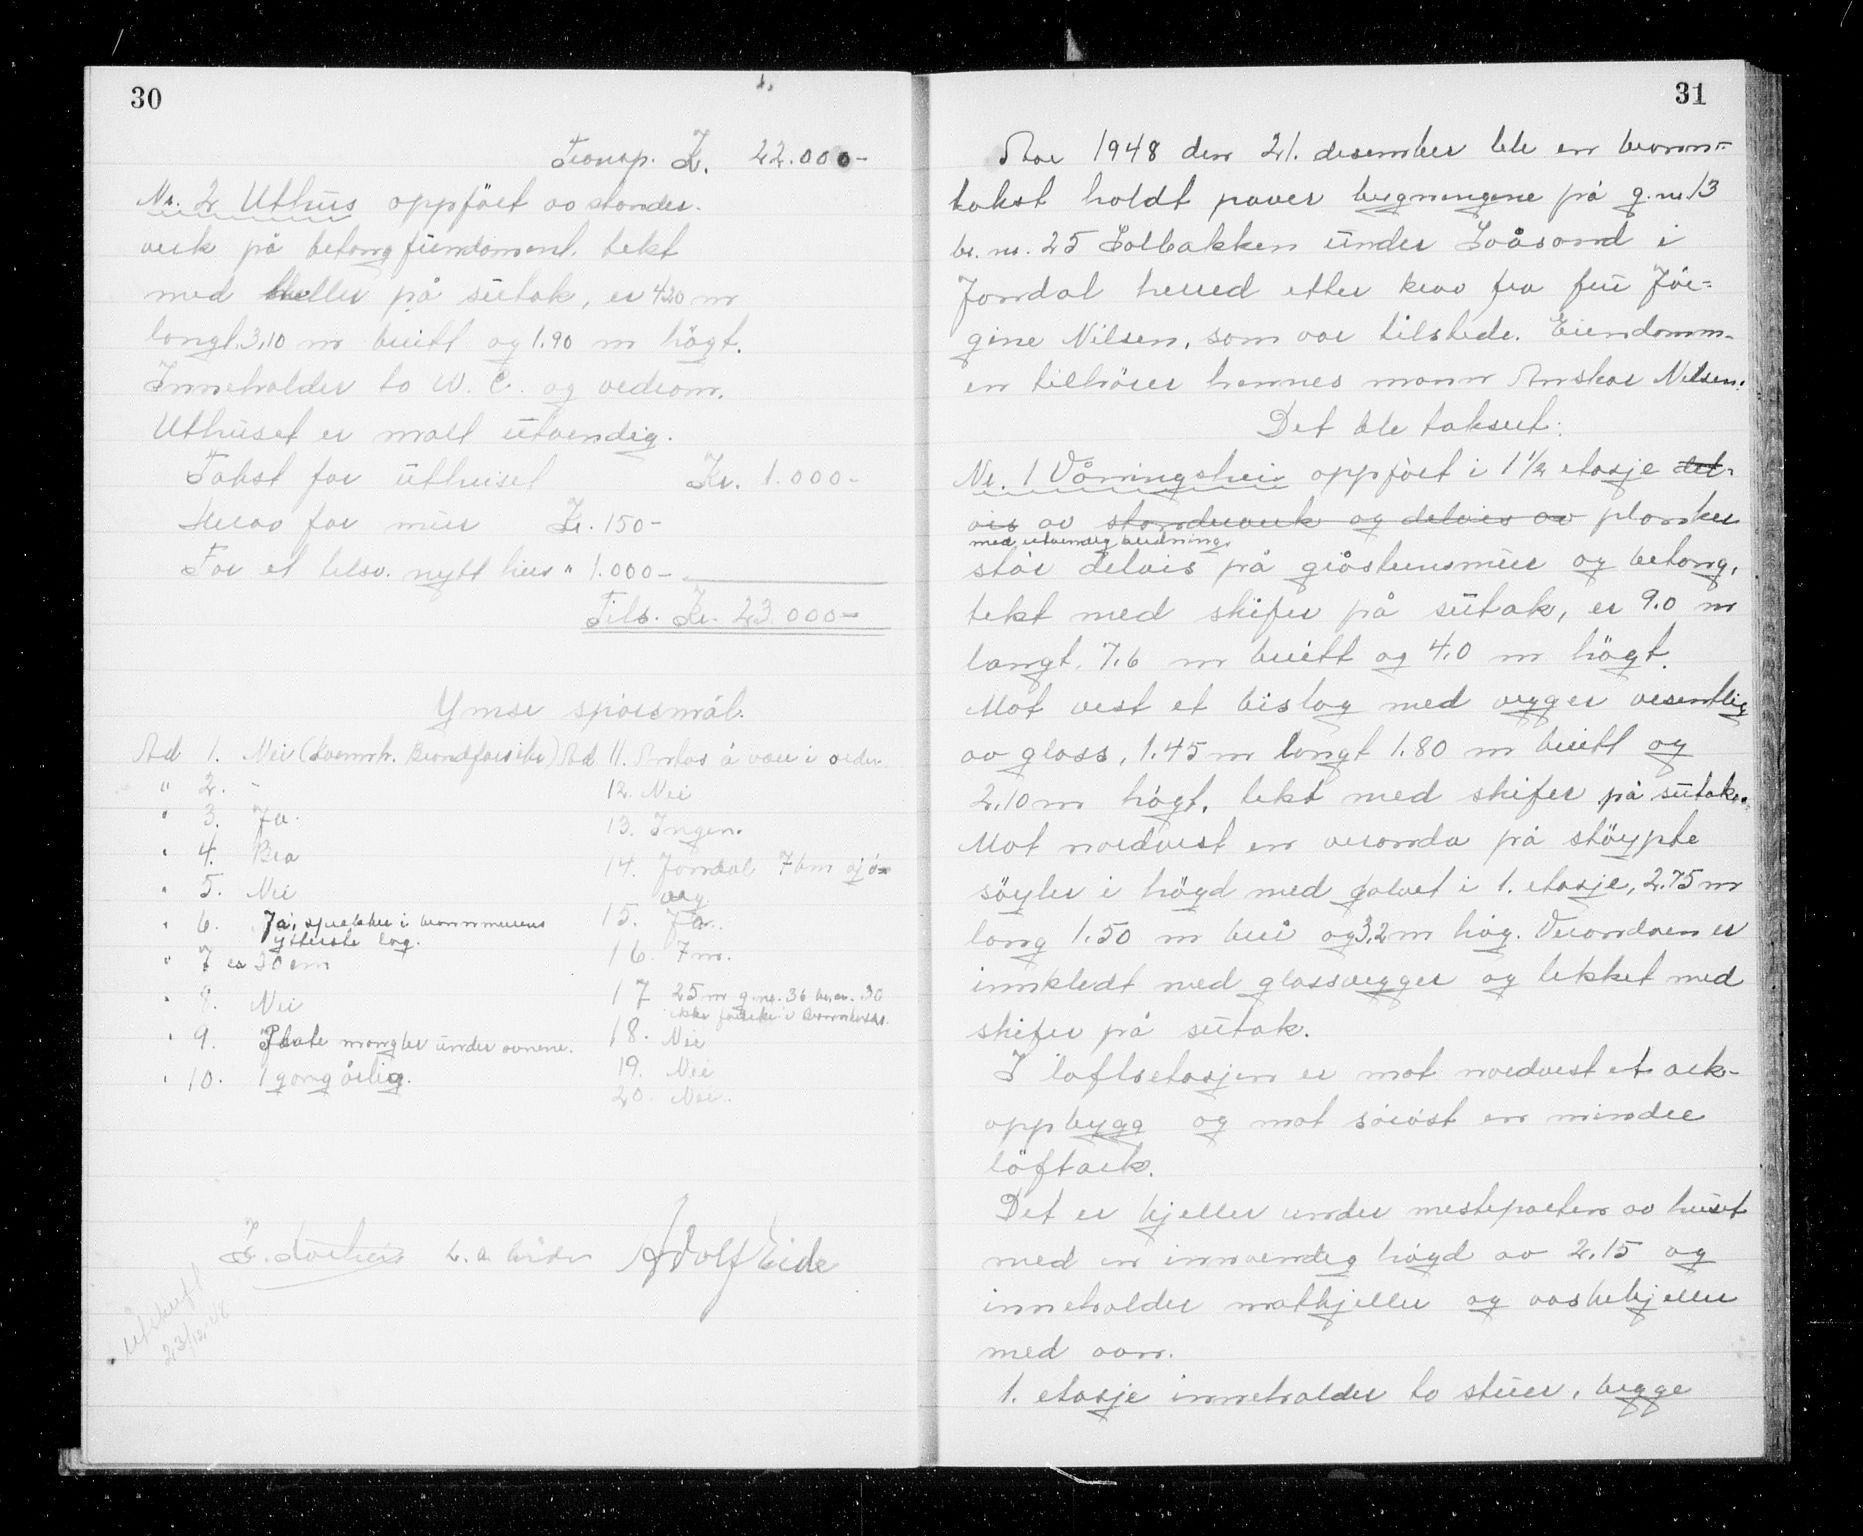 30
Transp. Kr. 22.000-
Nr. 2 Uthus oppført av stender-
verk på betongfundament. tekt
med heller på sutak, er 4.20 m
langt, 3,10 m breitt og 1.90 m högt.
Inneholder to W. C. og vedrom.
Uthuset er malt utvendig.
Takst for uthuset Kr. 1.000-
Herav for mur Kr. 150-
For et tilsv. nytt hus " 1.000-
Tils. Kr. 23.000-
Ymse spörsmål.
Ad 1. Nei (Kvamh. Brandforsikr.)
" 2. -
" 3. Ja.
" 4. Bra
" 5. Nei
" 6. Ja, sprekker i brannmurens
ytterste lag.
" 7 ca 30 cm
" 8. Nei
" 9. Plate mangler under ovnene.
" 10. 1 gang årlig.
Ad 11. Antas å være i orden.
12. Nei
13. Ingen.
14. Jondal 7 km sjö-
veg
15. Ja.
16. 7 m.
17 25 m g.nr. 36 br.nr. 30
ikke forsikr. i Brannkassa.
18. Nei
19. Nei
20. Nei.
Adolf Eide
Utskrift
23/12-48
31
Aar 1948 den 21. desember ble en brann-
takst holdt paver bygningene på g.nr. 13
br. nr. 25 Solbakken under Svåsand i
Jondal herred etter krav fra fru Jör-
gine Nilsen, som var tilstede. Eiendomm-
en tilhörer hennes mann Anskar Nilsen.
Det ble taksert:
Nr. 1 Våningshus oppfört i 1 1/2 etasje del-
vis av stenderverk og delvis av planker
med utvendig bordning.
står delvis på gråsteinsmur og betong,
tekt med skifer på sutak, er 9.0 m
langt, 7.6 m breitt og 4.0 m högt.
Mot vest et bislag med vegger vesentlig
av glass, 1.45 m langt 1.80 m breitt og
2.10 m högt, tekt med skifer på sutak.
Mot nordvest en veranda på stöypte
söyler i högd med golvet i 1. etasje, 2.75 m
lang 1.50 m brei og 3,2 m hög. Verandaen er
innkledt med glassvegger og tekket med
skifer på sutak.
I loftsetasjen er mot nordvest et ark-
oppbygg og mot söröst en mindre
löftark.
Det er kjeller under mesteparten av huset
med en innvendig högd av 2.15 og
inneholder matkjeller og vaskekjeller
med ovn.
1. etasje inneholder to stuer, begge